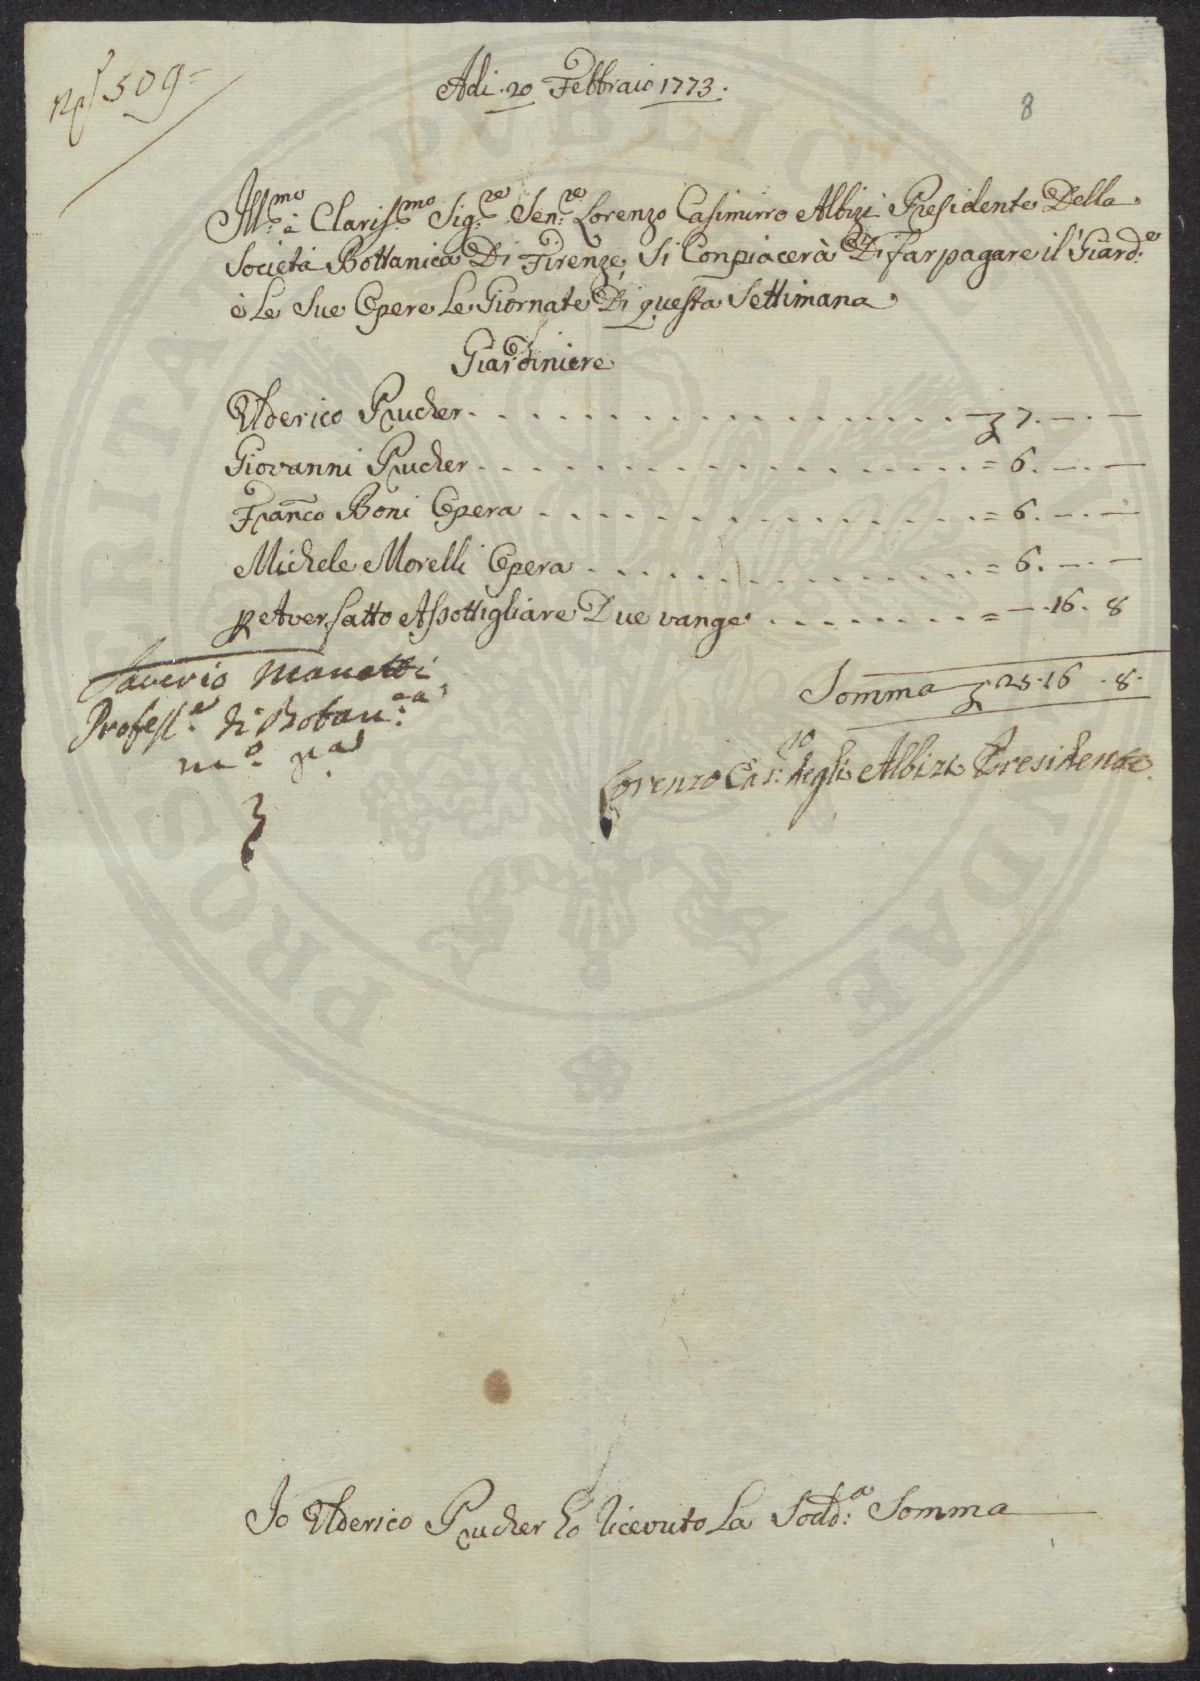 509=
Adi. 20 Febbraio 1773.
8
Ill:mo è Claris:mo Sig:re Sen:re Lorenzo Casimirro Albizi Presidente Della
Società Bottanica Di Firenze, Si Conpiacerà Di far pagare il Giard:e
è Le Sue Opere Le Giornate Di questa Settimana
Giardiniere
Ulderico Prucher . . . . . . . . 7. — . —
Giovanni Prucher . . . . . . . . = 6. — . —
Fran:co Boni Opera . . . . . . . . = 6. — . —
Michele Morelli Opera . . . . . . . . = 6. — . —
p Aver fatto Assottigliare Due vange . . . . . . . . = — . 16. 8
Somma 25. 16. 8.
Saverio Manetti
Profess:e di Botan:ca
m:o pa
Lorenzo Cas:ro degli Albizi Presidente
Io Ulderico Prucher ho ricevuto La Sodd:a Somma
PROSPERITATI PUBLICAE AUGENDAE